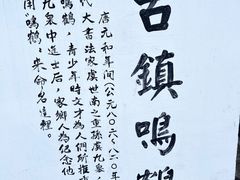 古鎮鳴鶴
唐元和年間（公元八〇六八二〇年
代大書法家虞世南之重孫虞九皋，
鳴鶴，青少年時文才為人們所推
九皋中進士后，家鄉人為紀念他
用"鳴鶴"來命名這裡。